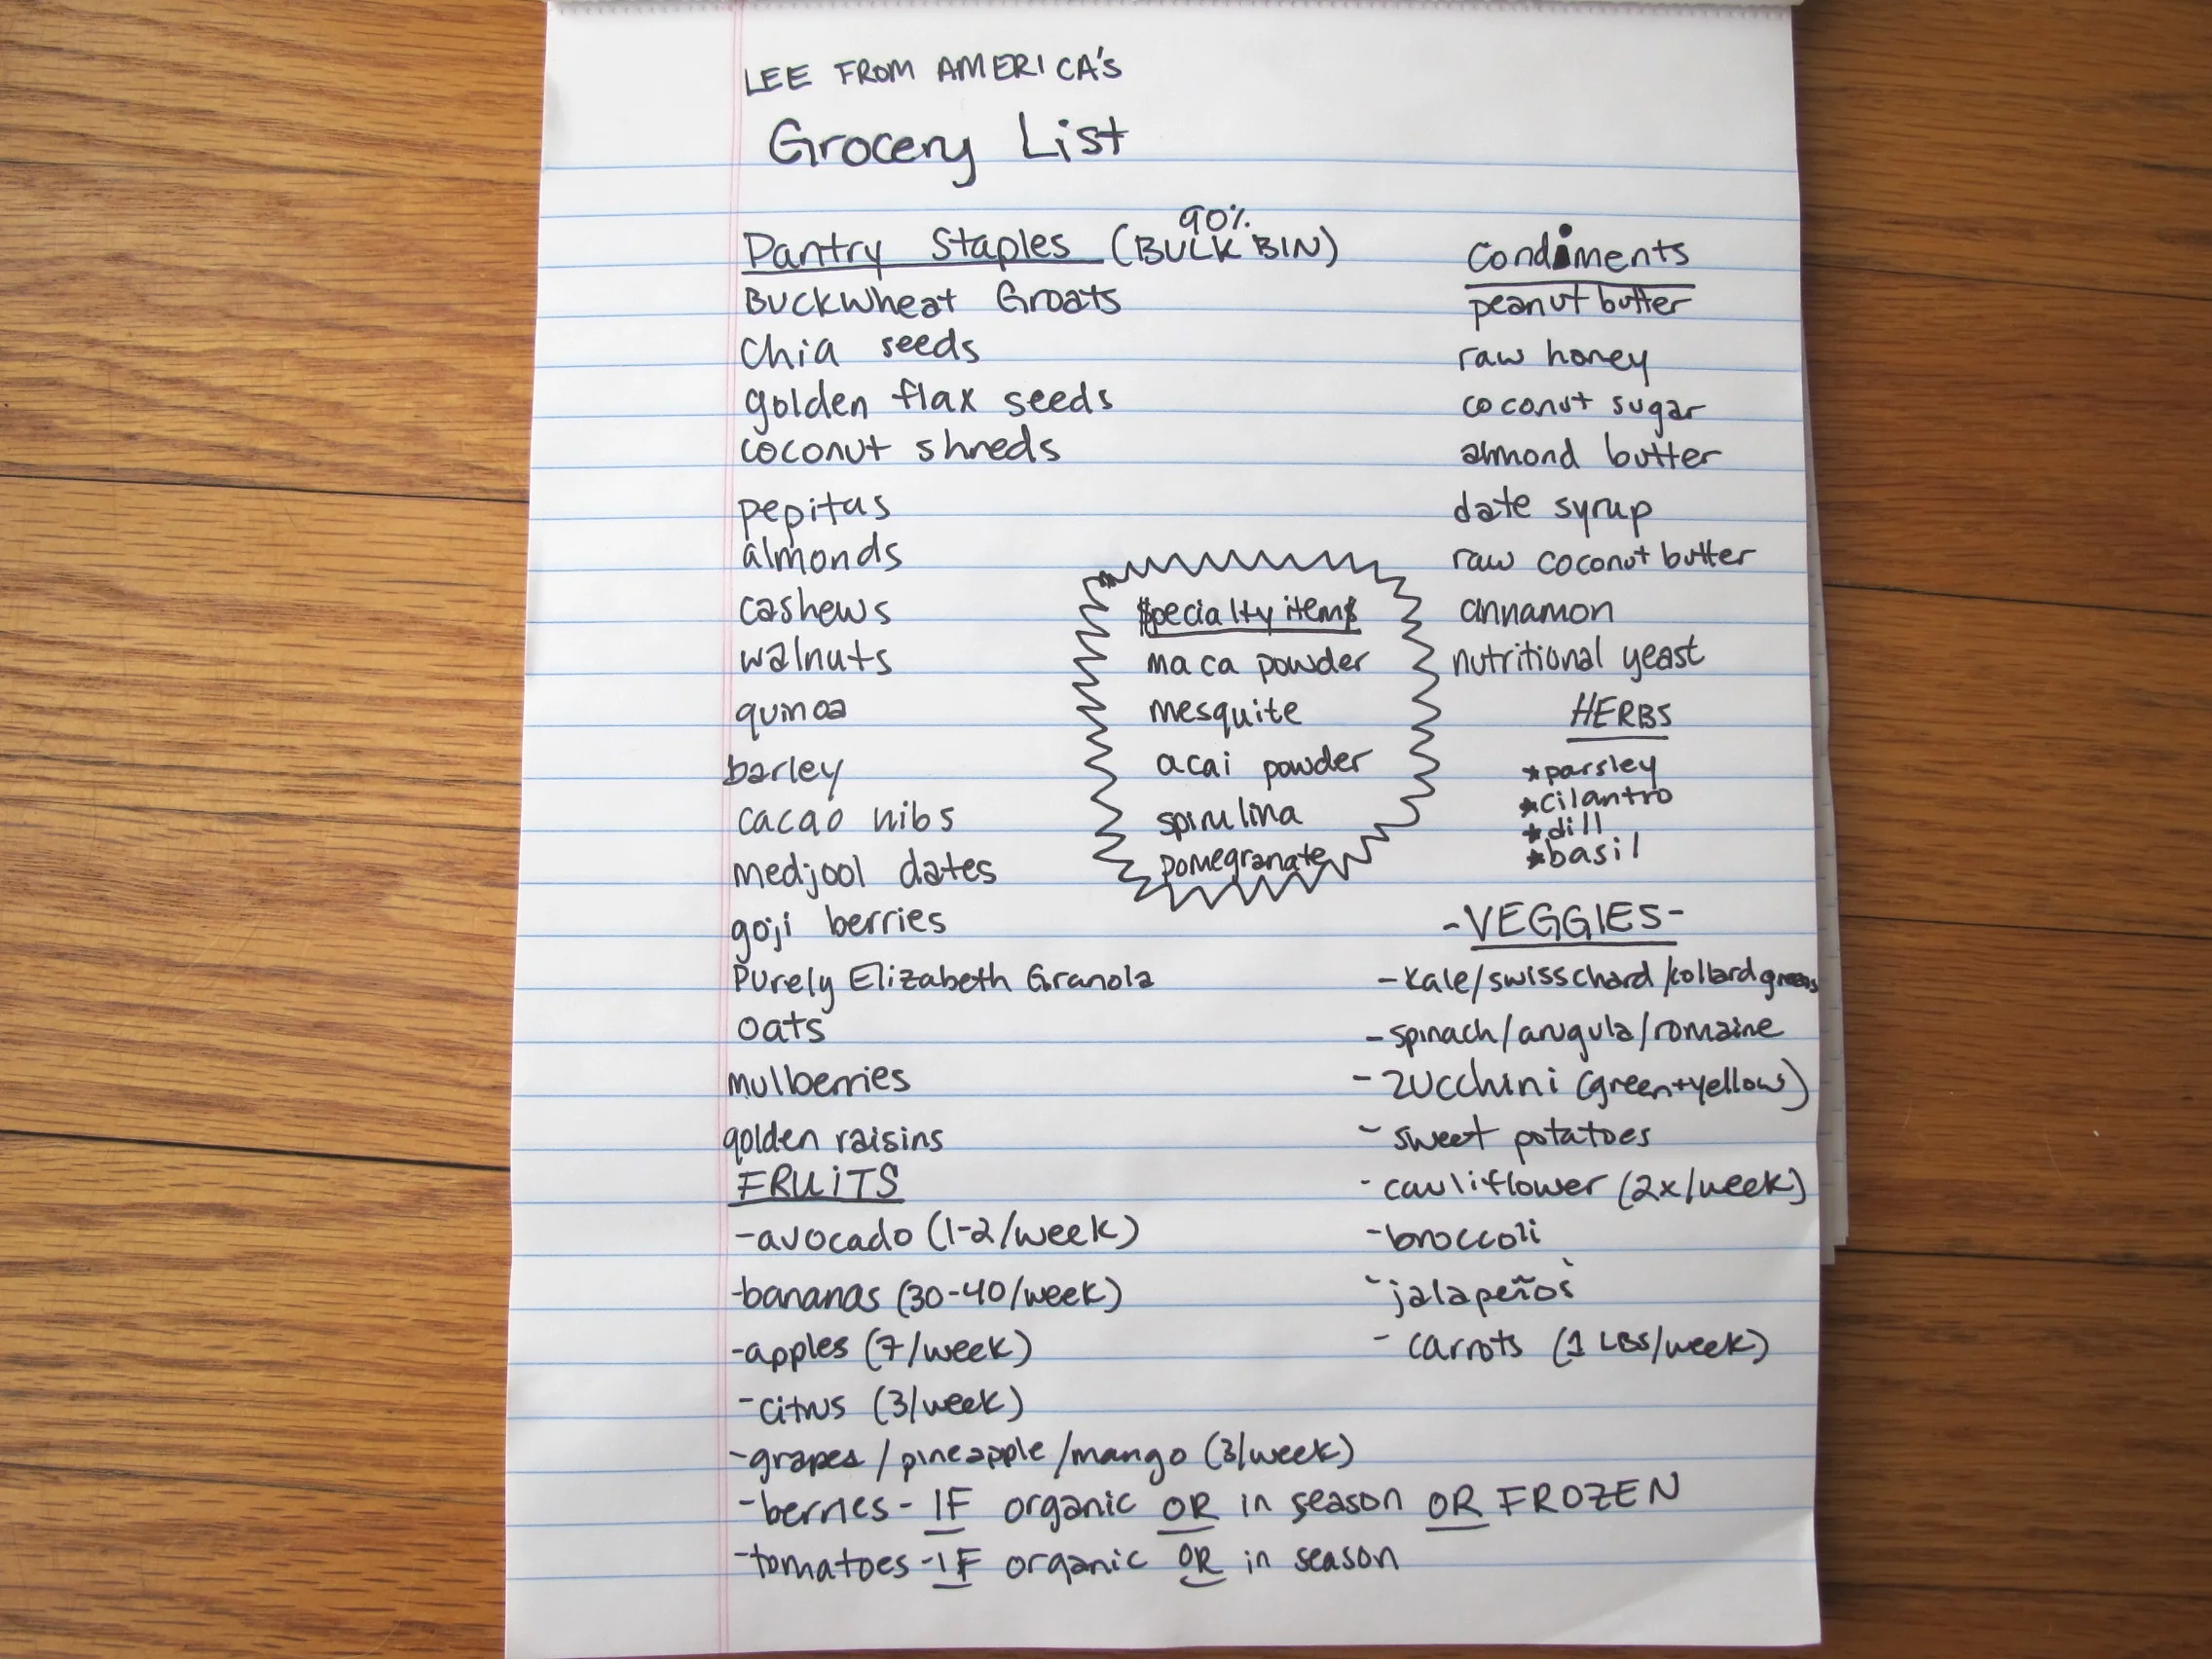 LEE FROM AMERICA'S
Grocery List
Pantry Staples (90% BULK BIN)
Buckwheat Groats
Chia seeds
golden flax seeds
coconut shreds
pepitas
almonds
cashews
walnuts
quinoa
barley
cacao nibs
medjool dates
goji berries
Purely Elizabeth Granola
oats
mulberries
golden raisins
FRUiTS
-avocado (1-2/week)
-bananas (30-40/week)
-apples (7/week)
-citrus (3/week)
-grapes/pineapple/mango (3/week)
-berries- IF organic OR in season OR FROZEN
-tomatoes-IF organic OR in season
$pecialty item$
maca powder
mesquite
acai powder
spirulina
pomegranate
Condiments
peanut butter
raw honey
coconut sugar
almond butter
date syrup
raw coconut butter
cinnamon
nutritional yeast
HERBS
*parsley
*cilantro
*dill
*basil
-VEGGIES-
-kale/swiss chard/collard greens
-spinach/arugula/romaine
-zucchini (green+yellow)
-sweet potatoes
-cauliflower (2x/week)
-broccoli
-jalapeños
-carrots (1 LBS/week)